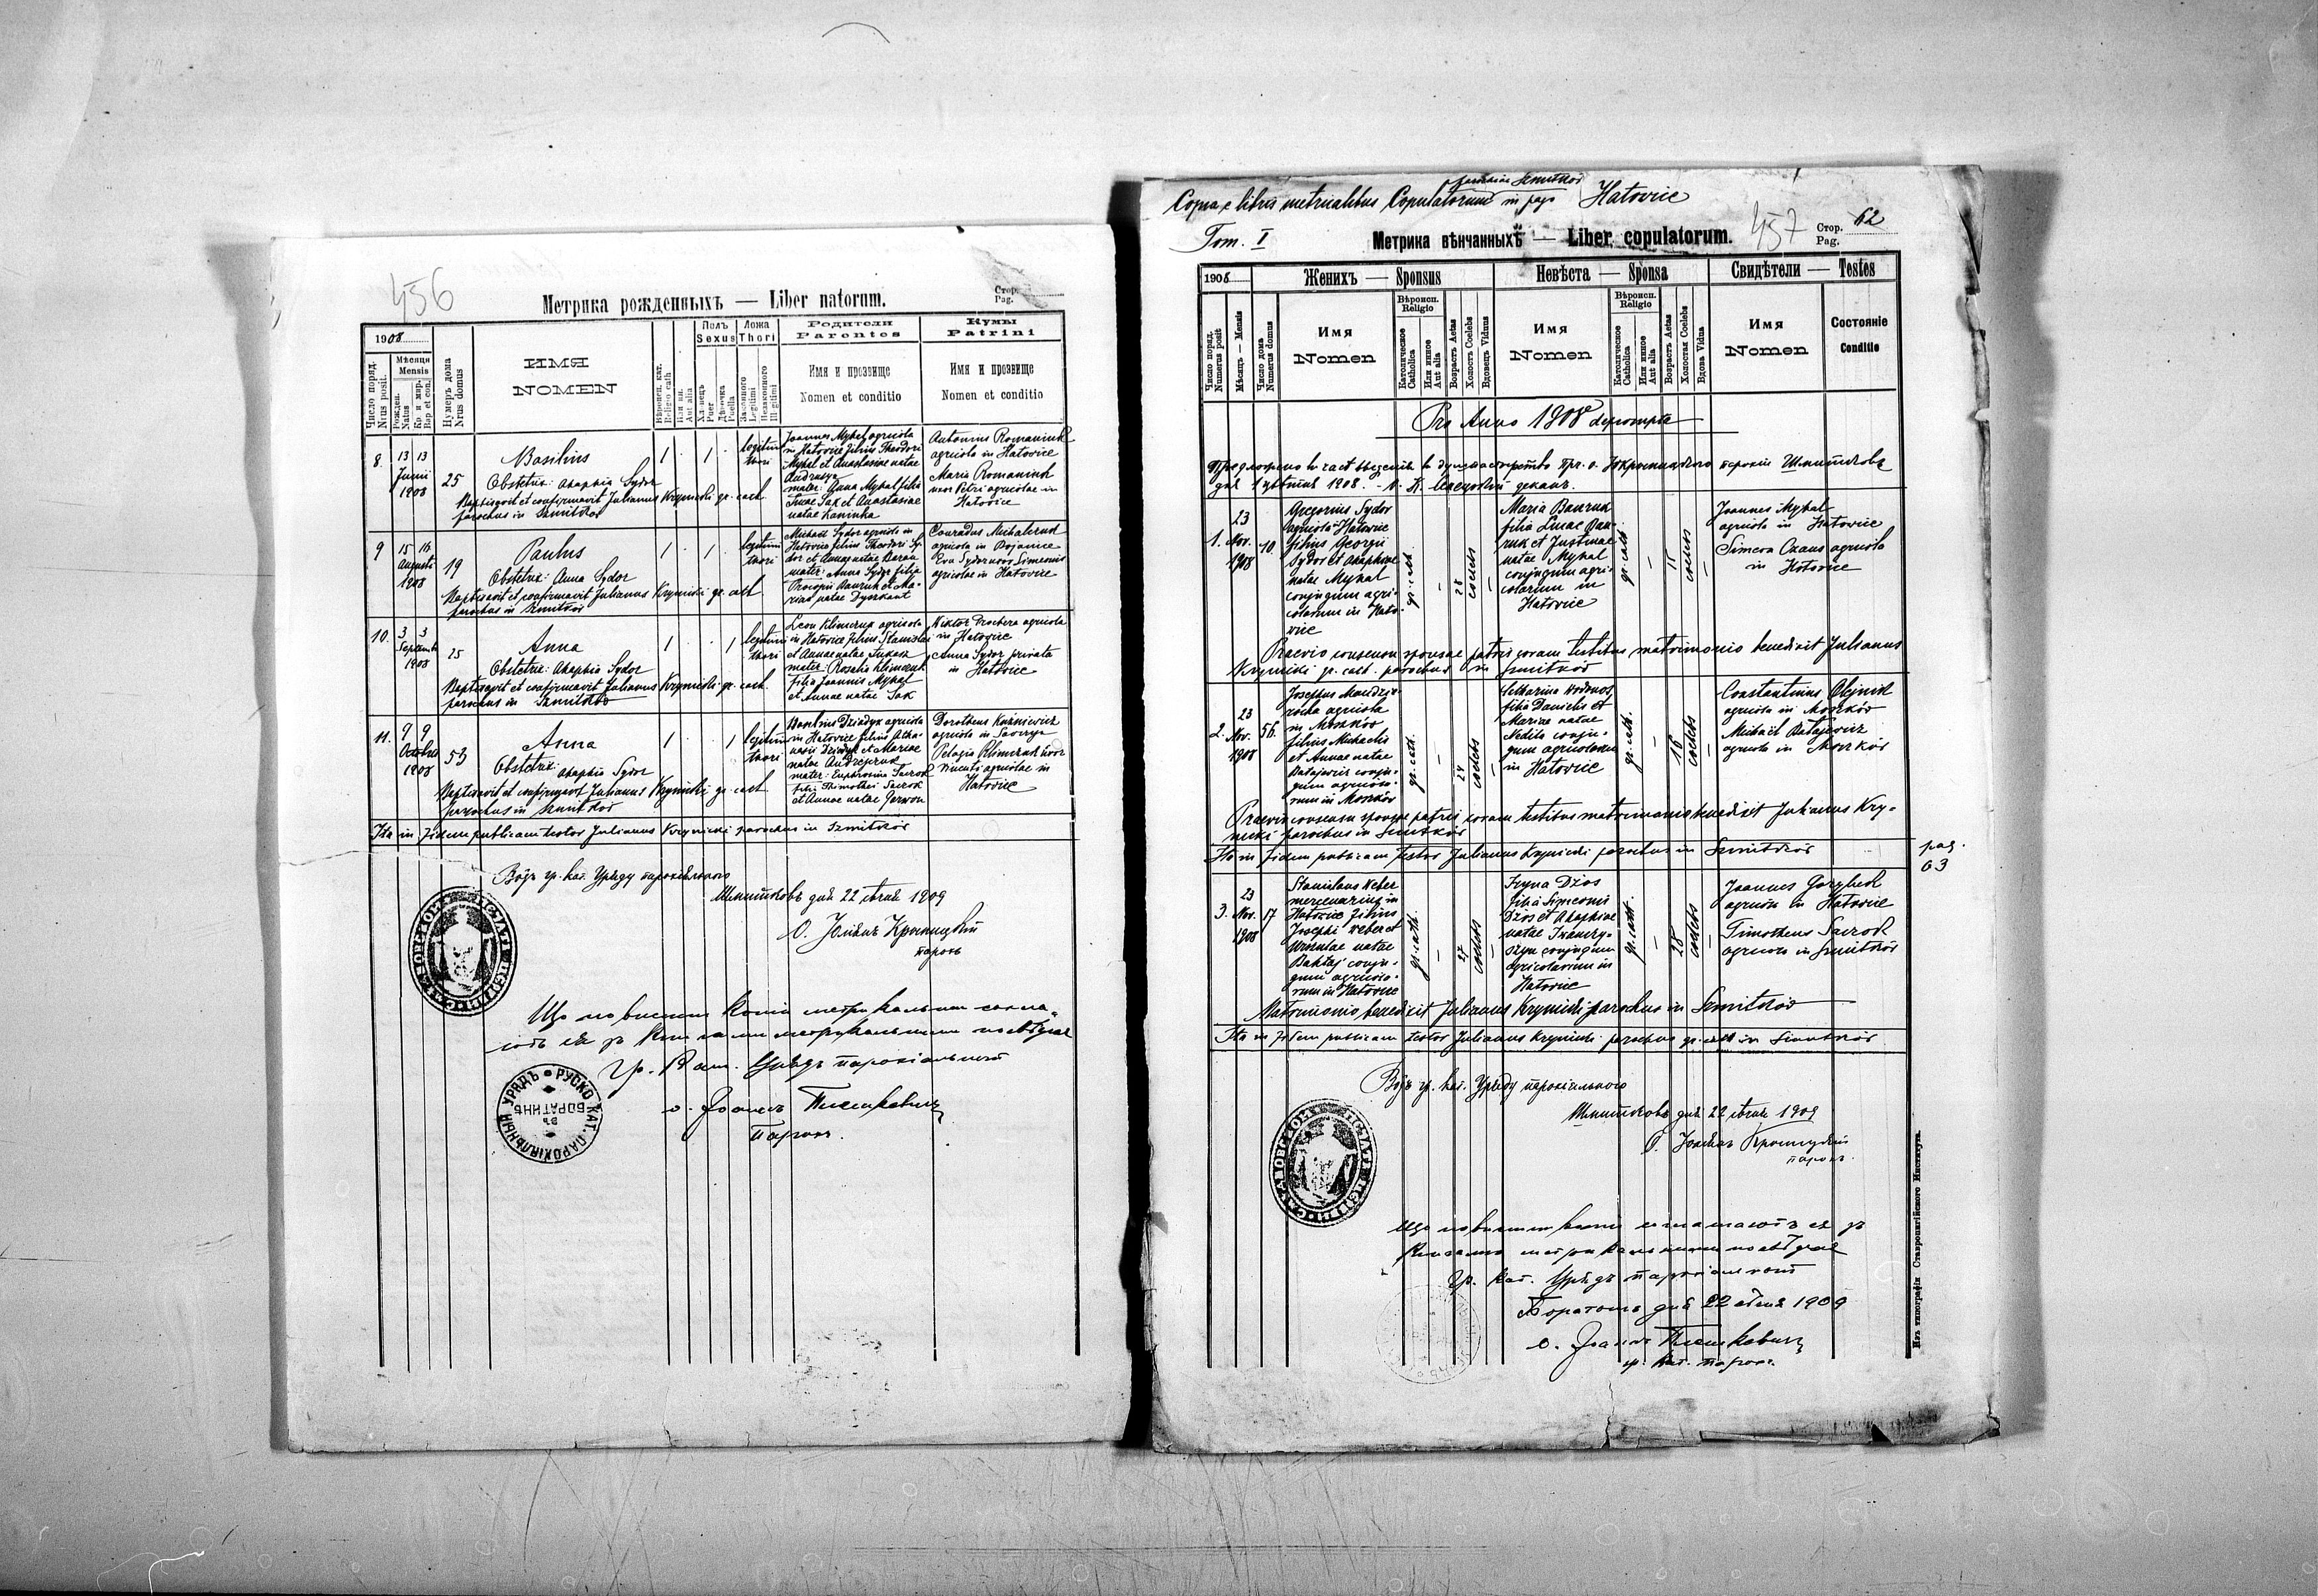 456
Метрика рожденныхъ — Liber natorum.
Стор.
Pag.
1908
Число поряд.
Nrus posit.
Мѣсяця
Mensis
Рожден.
Natus
Кр. и мир.
Bap et con.
Нумеръ дома
Nrus domus
ИМЯ
NOMEN
Вѣроисп. кат.
Religio cath
Или ин.
Aut alia
Полъ
Sexus
Хлопецъ
Puer
Дѣвочка
Puella
Ложа
Thori
Законного
Legitimi
Незаконного
Illegitimi
Родители
Parentes
Имя и прозвище
Nomen et conditio
Кумы
Patrini
Имя и прозвище
Nomen et conditio
8.
13 13
Junii
1908
25
Basilius
Obstetrix: Ahaphia Sydor
Baptisavit et confirmavit Julianus Krynicki gr. cath.
parochus in Szmitków
1 . 1 .
legitimi
thori
Joannes Mykal agricola
in Hatowice filius Theodori
Mykal et Anastasiae natae
Andrasz
mater: Anna Mykal filia
Lucae Sak et Anastasiae
natae Kaninka
Antonius Romaniuk
agricola in Hatowice
Maria Romaniuk
uxor Petri agricolae in
Hatowice
9
15 16
Augusti
1908
19
Paulus
Obstetrix: Anna Sydor
Baptisavit et confirmavit Julianus Krynicki gr. cath
parochus in Szmitków
1 . 1 .
legitimi
thori
Michael Sydor agricola in
Hatowice filius Theodori Sy-
dor et Annae natae Baran
mater: Anna Sydor filia
Procopii Bauruk et Ma-
riae natae Dyszkant
Conradus Michalczuk
agricola in Bojanice
Eva Sydor uxor Simeonis
agricolae in Hatowice
10.
3 3
Septembr
1908
25
Anna
Obstetrix: Ahaphia Sydor
Baptisavit et confirmavit Julianus Krynicki gr. cath.
parochus in Szmitków
1 . . 1
legitimi
thori
Leon Klimczuk agricola
in Hatowice filius Stanislai
et Annae natae Łukasz
mater: Rosalia Klimczuk
filia Joannis Mykal
et Annae natae Sak
Wiktor Prochera agricola
in Hatowice
Anna Sydor privata
in Hatowice
11.
9 9
Octobris
1908
53
Anna
Obstetrix: Ahaphia Sydor
Baptisavit et confirmavit Julianus Krynicki gr. cath
parochus in Szmitków
1 . . 1
legitimi
thori
Dziadyk agricola
in Hatowice filius Atha-
nasii Dziadyk et Mariae
natae Andrejczuk
mater: Euphrosina Saczok
filia Thimothei Saczok
et Annae natae
Dorotheus Kuźniewicz
agricola in Sawczyn
Pelagia Klimczuk uxor
Vincentii agricolae in
Hatowice
Ita in fidem publicam testor Julianus Krynicki parochus in Szmitków
Водъ гр. кат. Уряду парохіяльного
Шмитковъ дня 22 сѣчня 1909
О. Юліянъ Крыницкій
парохъ
Що повысши копіи метрикальни согла-
сють ся зъ книгами метрикальными посвѣдчае
Гр. Кат. Урядъ парохіяльный
о. Іоаннъ
Парохъ.
РУСКО КАТ. ПАРОХІЯЛЬНЫЙ УРЯДЪ
ВЪ
БОРАТИНѢ
Copia e libris metricalibus Copulatorum parochiae Szmitków in pago Hatowice
Tom. I
Метрика вѣнчанныхъ — Liber copulatorum.
457
Стор.
Pag.
62
1908
Число поряд.
Numerus posit
Мѣсяцъ — Mensis
Число дома
Numerus domus
Женихъ — Sponsus
Имя
Nomen
Вѣроисп.
Religio
Католическое
Catholica
Или иное
Aut alia
Возрастъ Aetas
Холостъ Coelebs
Вдовецъ Viduus
Невѣста — Sponsa
Имя
Nomen
Вѣроисп.
Religio
Католическое
Catholica
Или иное
Aut alia
Возрастъ Aetas
Холостая Coelebs
Вдова Vidua
Свидѣтели — Testes
Имя
Nomen
Состояніе
Conditio
Pro Anno 1908 deprompta
Предложено въ часѣ введенія въ душпастырство Пр. о. Ю. Крыницкого парохіи Шмитковъ
дня 1 цвѣтня 1908. деканъ.
1.
23
Nov.
1908
10.
Gregorius Sydor
agricola Hatowice
filius Georgii
Sydor et Ahaphiae
natae Mykal
conjugum agri-
colarum in Hato-
wice
gr. cath.
—
28
coelebs
—
Maria Bauruk
filia Lucae Bau-
ruk et Justinae
natae Mykal
conjugum agri-
colarum in
Hatowice
gr. cath
—
18
coelebs
—
Joannes Mykal
agricola in Hatowice
Simeon agricola
in Hatowice
Praevio consensu sponsae patris coram testibus matrimonio benedixit Julianus
Krynicki gr. cath. parochus in Szmitków
2.
23
Nov.
1908
56.
Josephus Mandzia-
rocha agricola
in Moszków
filius Michaelis
et Annae natae
Batajewicz conju-
gum agricola-
rum in Moszków
gr. cath.
—
24
coelebs
—
Catharina Wodnos
filia Danielis et
Mariae natae
Nedilo conju-
gum agricolarum
in Hatowice
gr. cath.
—
18
coelebs
—
Constantinus Olejnik
agricola in Moszków
Michaël Batajewicz
agricola in Moszków
Praevio consensu sponsae patris coram testibus matrimonio benedixit Julianus Kry-
nicki parochus in Szmitków
Ita in fidem publicam testor Julianus Krynicki parochus in Szmitków
pag.
63
3.
23
Nov.
1908
17
Stanislaus Weber
mercenarius in
Hatowice filius
Josephi Weber et
Ursulae natae
Bakłaj conju-
gum agricola-
rum in Hatowice
gr. cath.
—
27
coelebs
—
Iryna Dżos
filia Simeonis
Dżos et Ahaphiae
natae Iwanczy-
szyn conjugum
agricolarum in
Hatowice
gr. cath.
—
28
coelebs
—
Joannes
agricola in Hatowice
Timotheus Saczok
agricola in Szmitków
Matrimonio benedixit Julianus Krynicki parochus in Szmitków
Ita in fidem publicam testor Julianus Krynicki parochus gr. cath in Szmitków
Водъ гр. кат. Уряду парохіяльного
Шмитковъ дня 22 сѣчня 1909
О. Юліянъ Крыницкій
парохъ.
Що повысши копіи согласють ся зъ
книгами метрикальными посвѣдчае
Гр. кат. Урядъ парохіяльный
Боратинъ дня 22 сѣчня 1909
о. Іоаннъ
гр. кат. парохъ.
Изъ типографіи Ставропигійского Института.